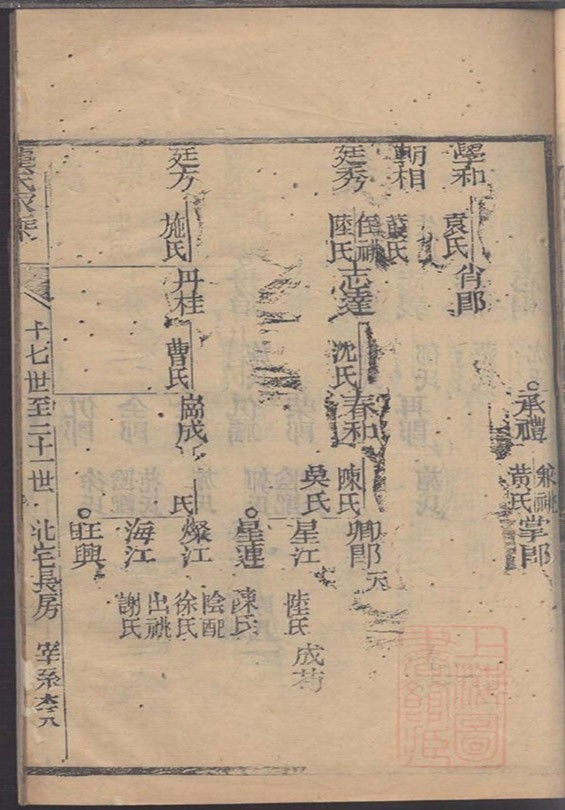 學和
袁氏
肖郎
承禮
兼祧
黃氏
掌郎
朝相
薛氏
廷秀
陸氏
志達
沈氏
春和
陳氏
吳氏
卿郎
星江
陸氏
星連
陳氏
廷方
施氏
丹桂
曹氏
嵩成
氏
燦江
陰配
徐氏
海江
出祧
謝氏
旺興
十七世至二十一世
北宅長房
宰系
上海圖書館藏